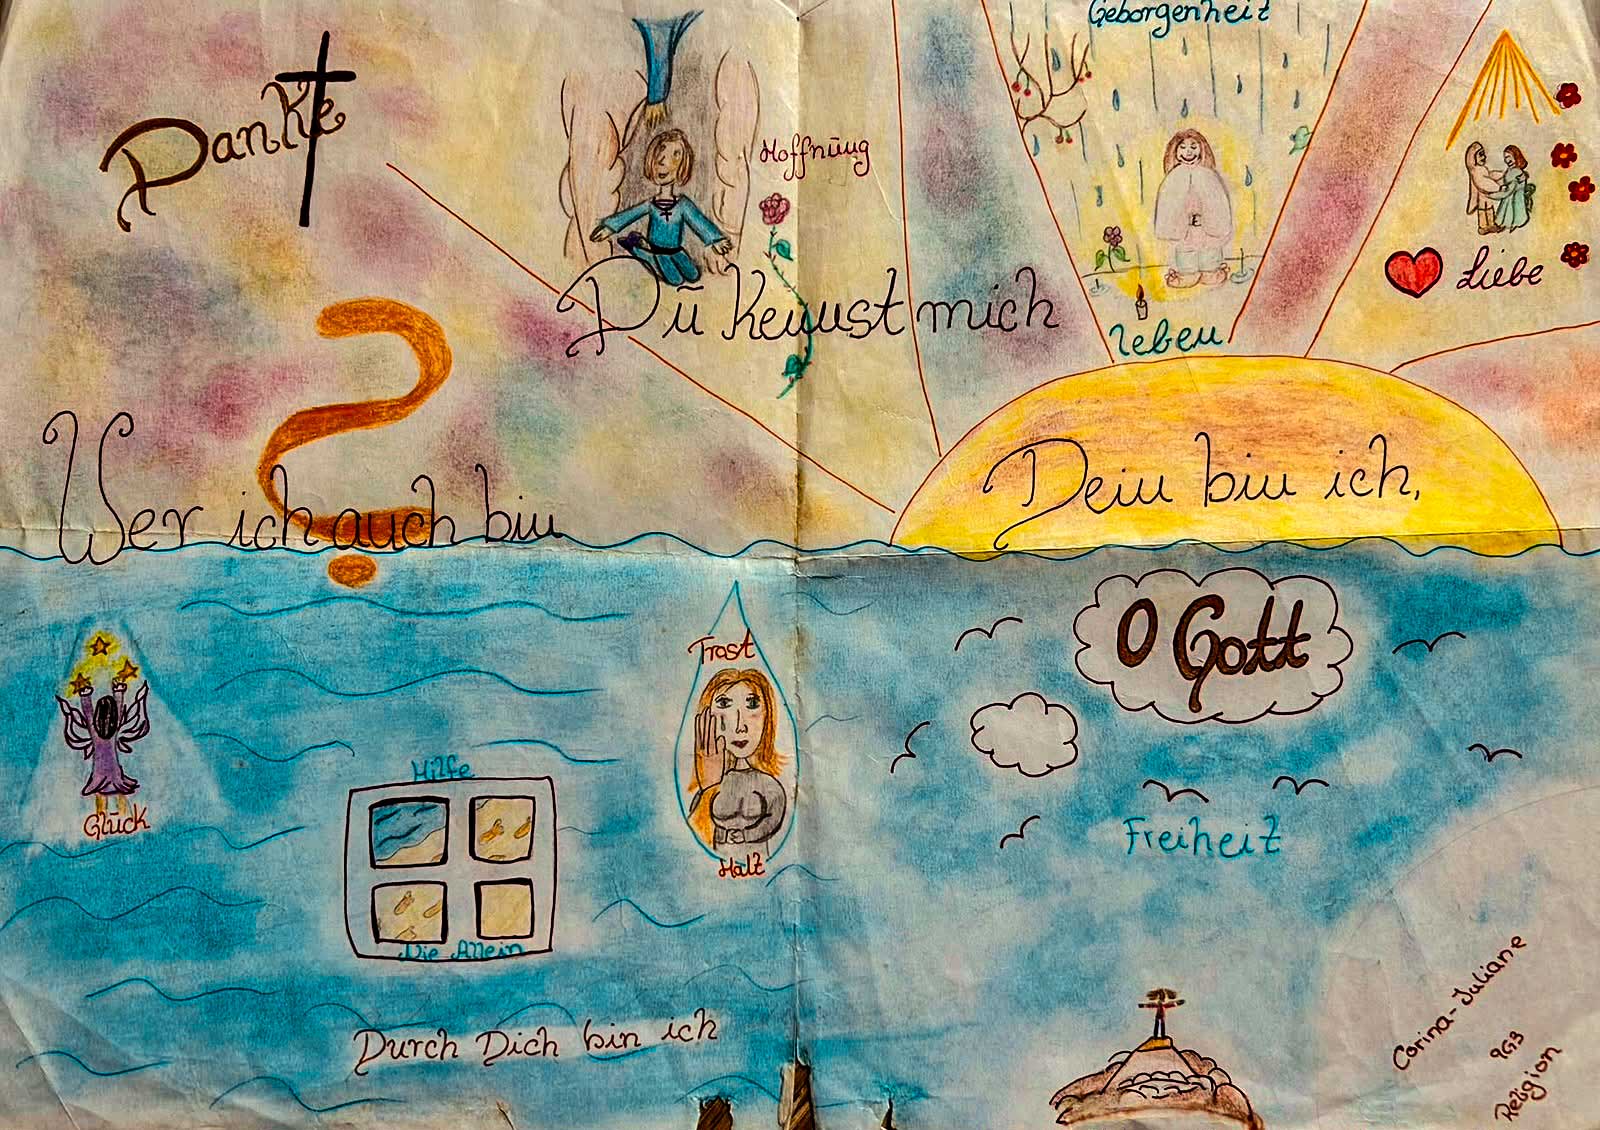 Geborgenheit
Danke
Hoffnūng
Liebe
Dū kennst mich
Leben
Dein bin ich,
Wer ich auch bin
?
O Gott
Trost
Hilfe
Glück
Halt
Freiheit
Nie Allein
Durch Dich bin ich
Corina-Juliane
9G3
Religion